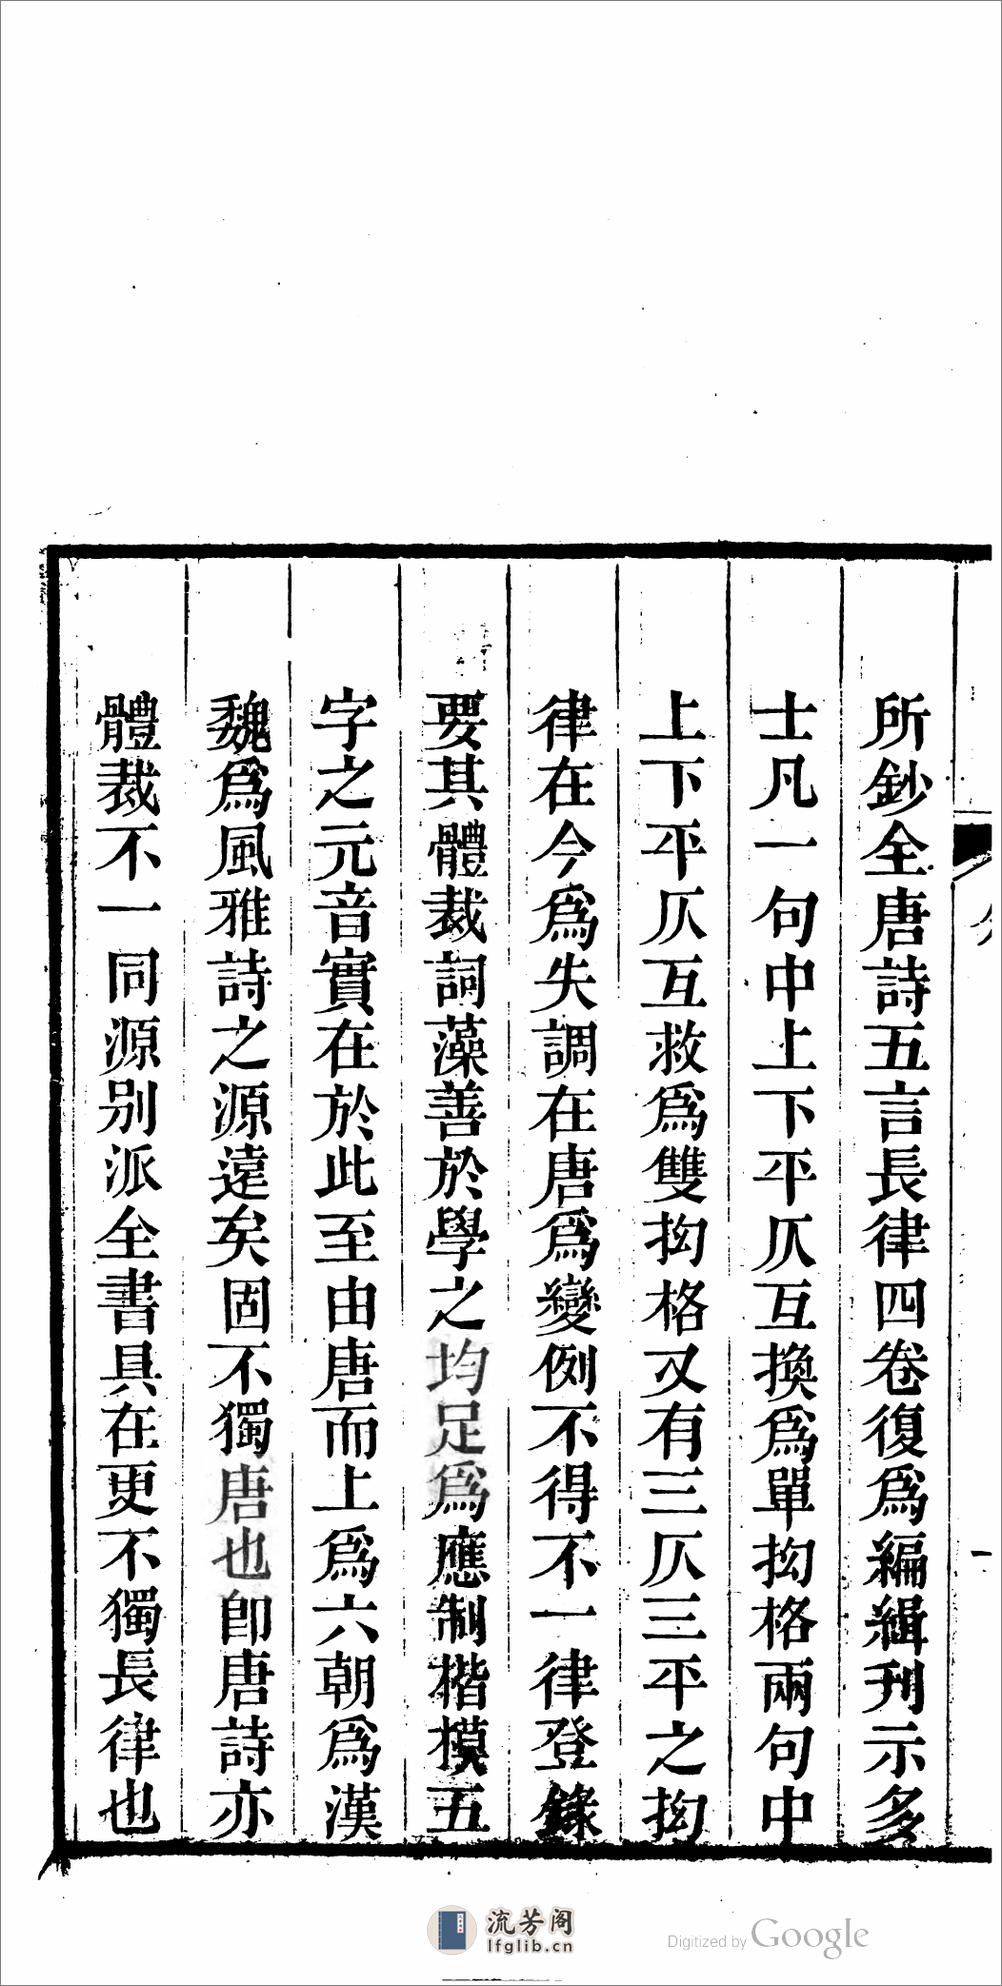 所鈔全唐詩五言長律四卷復爲編緝刋示多
士凡一句中上下平仄互換爲單抝格兩句中
上下平仄互救爲雙抝格又有三仄三平之抝
律在今爲失調在唐爲變例不得不一律登錄
要其體裁詞藻善於學之均足爲應制楷模五
字之元音實在於此至由唐而上爲六朝爲漢
魏爲風雅詩之源遠矣固不獨唐也卽唐詩亦
體裁不一同源別派全書具在更不獨長律也
一
流芳阁
lfglib.cn
Digitized by Google